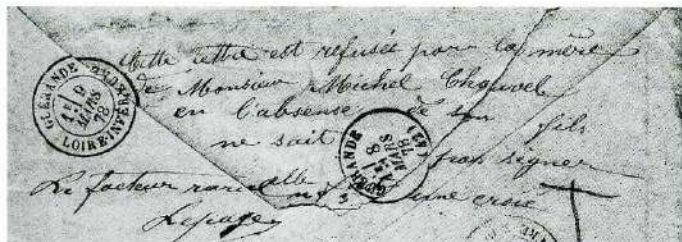 Cette lettre est refusée par la mère
de Monsieur Michel Chouvel
en l'absense de son fils
ne sait pas signer
Le facteur rural elle une croix
Lepage
GUÉRANDE
1E
9
MARS
78
LOIRE-INFÉRIEURE
GUÉRANDE
8
MARS
78